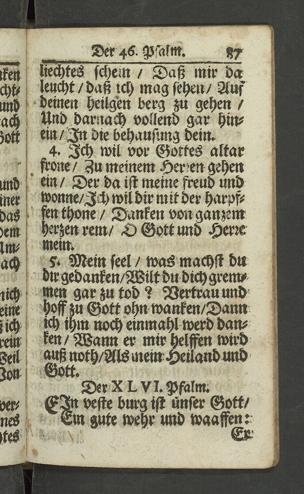 Der 46. Psalm. 87
liechtes schein / Daß mir da
leucht / daß ich mag sehen / Auf
deinen heilgen berg zu gehen /
Und darnach vollend gar hin-
ein / In die behausung dein.
4. Ich wil vor Gottes altar
frone / Zu meinem Herren gehen
ein / Der da ist meine freud und
wonne / Ich wil dir mit der harpf-
fen thone / Dancken von ganzem
herzen rein / O Gott und Herre
mein.
5. Mein seel / was machst du
dir gedancken / Wilt du dich grem-
men gar zu tod? Vertrau und
hoff zu Gott ohn wancken / Dann
ich ihm noch einmahl werd dan-
cken / Wann er mir helffen wird
auß noth / Als mein Heiland und
Gott.
Der XLVI. Psalm.
EIn veste burg ist unser Gott /
Ein gute wehr und waaffen:
Er